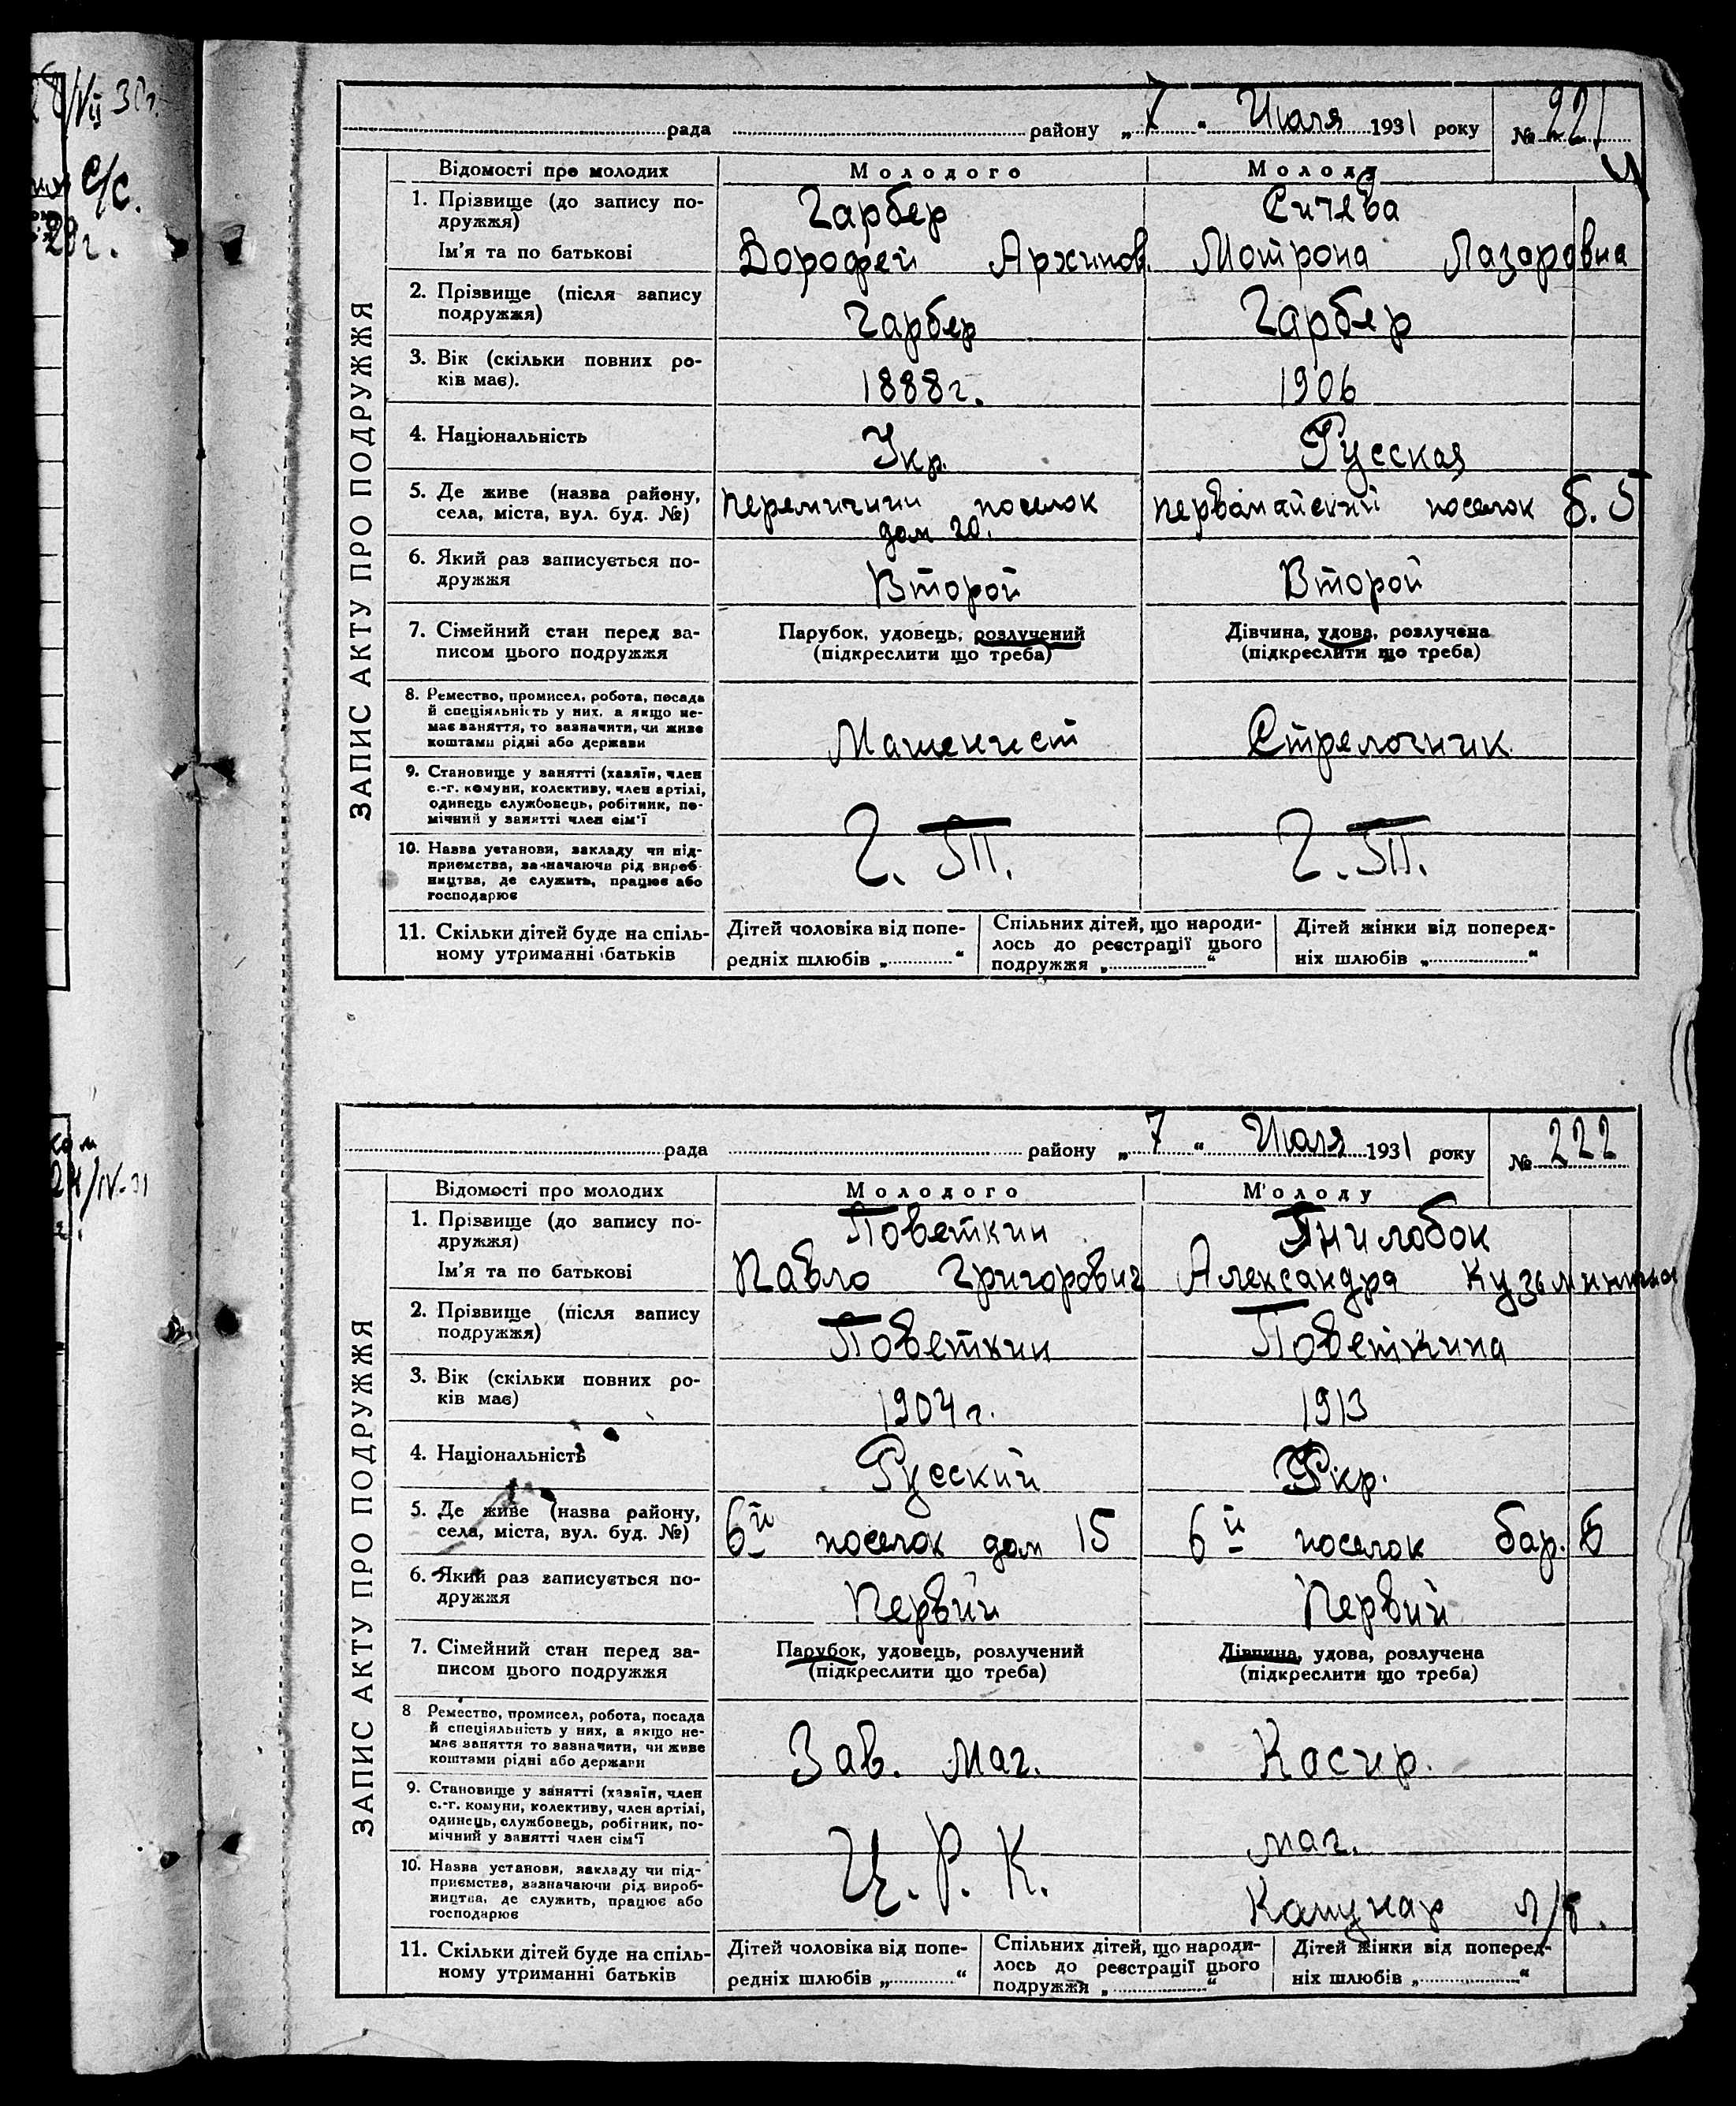 /VII 30г.
с/с.
28г.
рада районү „ 7 “ Июля 1931 року № 221
Відомості про молодих Молодого Молоду
1. Прізвище (до запису по-
дружжя) Гарбер Сичева
Ім'я та по батькові Дорофей Архипов. Мотрона Лазаровна
2. Прізвище (після запису
подружжя) Гарбер Гарбер
3. Вік (скільки повних ро-
ків має). 1888г. 1906
4. Національність Укр. Русская
5. Де живе (назва району,
села, міста, вул. буд. №) поселок первомайский поселок б. 5
дом 20.
6. Який раз записується по-
дружжя Второй Второй
7. Сімейний стан перед за-
писом цього подружжя
Парубок, удовець, розлучений
(підкреслити що треба)
Дівчина, удова, розлучена
(підкреслити що треба)
8. Ремество, промисел, робота, посада
й спеціяльність у них, а якщо не-
має заняття, то зазначити, чи живе
коштами рідні або держави Машенист Стрелочник
9. Становище у занятті (хазяїн, член
с.-г. комуни, колективу, член артілі,
одинець службовець, робітник, по-
мічний у занятті член сім'ї
10. Назва установи, закладу чи під-
приємства, зазначаючи рід вироб-
ництва, де служить, працює або
господарює Г. П. Г. П.
11. Скільки дітей буде на спіль-
ному утриманні батьків
Дітей чоловіка від попе-
редніх шлюбів „ “
Спільних дітей, що народи-
лось до реєстрації цього
подружжя „ “
Дітей жінки від поперед-
ніх шлюбів „ “
ЗАПИС АКТУ ПРО ПОДРУЖЖЯ
24/IV-31
рада району „ 7 “ Июля 1931 року № 222
Відомості про молодих Молодого Молоду
1. Прізвище (до запису по-
дружжя) Поветкин Гнилобок
Ім'я та по батькові Павло Григорович Александра Кузьминична
2. Прізвище (після запису
подружжя) Поветкин Поветкина
3. Вік (скільки повних ро-
ків має) 1904г. 1913
4. Національність Русский Укр.
5. Де живе (назва району,
села, міста, вул. буд. №) 6й поселок дом 15 6й поселок бар. 6
6. Який раз записується по-
дружжя Первий Первий
7. Сімейний стан перед за-
писом цього подружжя
Парубок, удовець, розлучений
(підкреслити що треба)
Дівчина, удова, розлучена
(підкреслити що треба)
8 Ремество, промисел, робота, посада
й спеціяльність у них, а якщо не-
має заняття то зазначити, чи живе
коштами рідні або держави Зав. маг. Касир.
9. Становище у занятті (хазяїн, член
с.-г. комуни, колективу, член артілі,
одинець, службовець, робітник, по-
мічний у занятті член сім'ї маг.
10. Назва установи, закладу чи під-
приємства, зазначаючи рід вироб-
ництва, де служить, працює або
господарює Ц. Р. К.
11. Скільки дітей буде на спіль-
ному утриманні батьків
Дітей чоловіка від попе-
редніх шлюбів „ “
Спільних дітей, що народи-
лось до реєстрації цього
подружжя „ “
Дітей жінки від поперед-
ніх шлюбів „ “
ЗАПИС АКТУ ПРО ПОДРУЖЖЯ